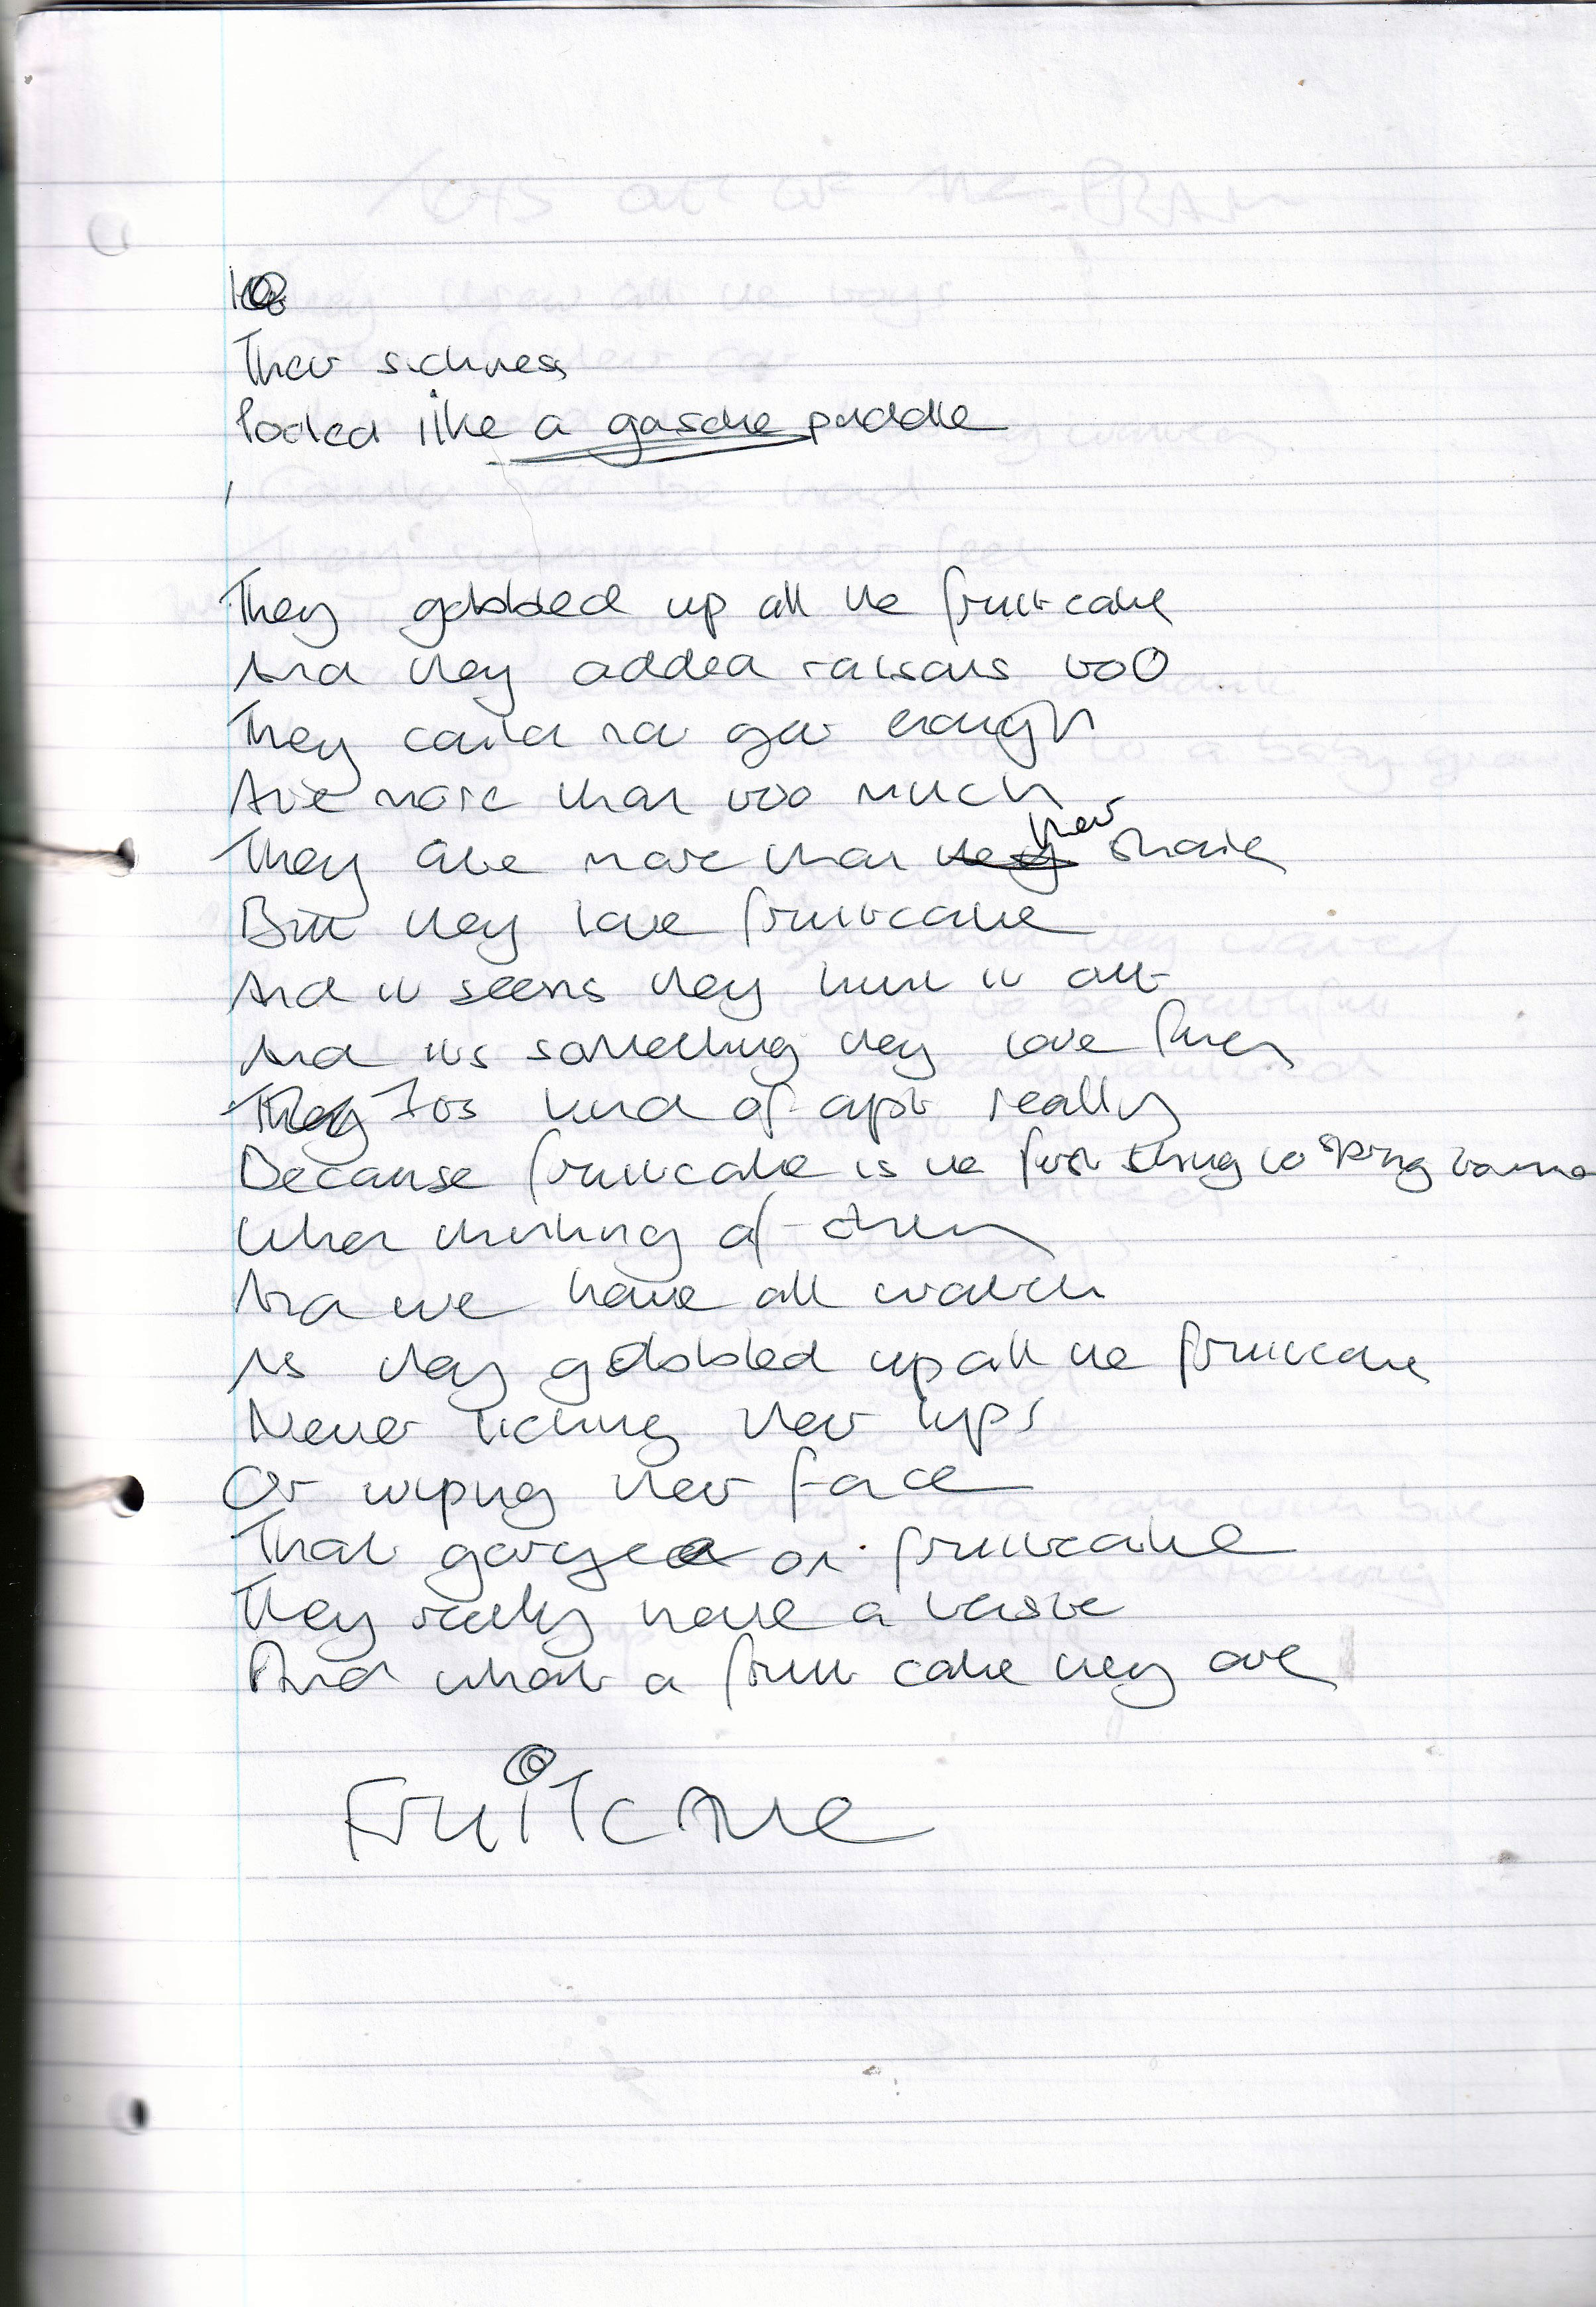 Their sickness
Pooled like a gasoline puddle
They gobbled up all the fruitcake
And they added raisons too
They could not get enough
Ate more than too much
They ate more than their share
But they love fruitcake
And it seems they hunt it out
And its something they love
Its kind of apt really
Because fruitcake is the first thing to spring to mind
When thinking of them
And we have all watch
As they gobbled up all the fruitcake
Never licking their lips
Or wiping their face
That gorge on fruitcake
They really have a taste
And what a fruit cake they are
FruiTcAke